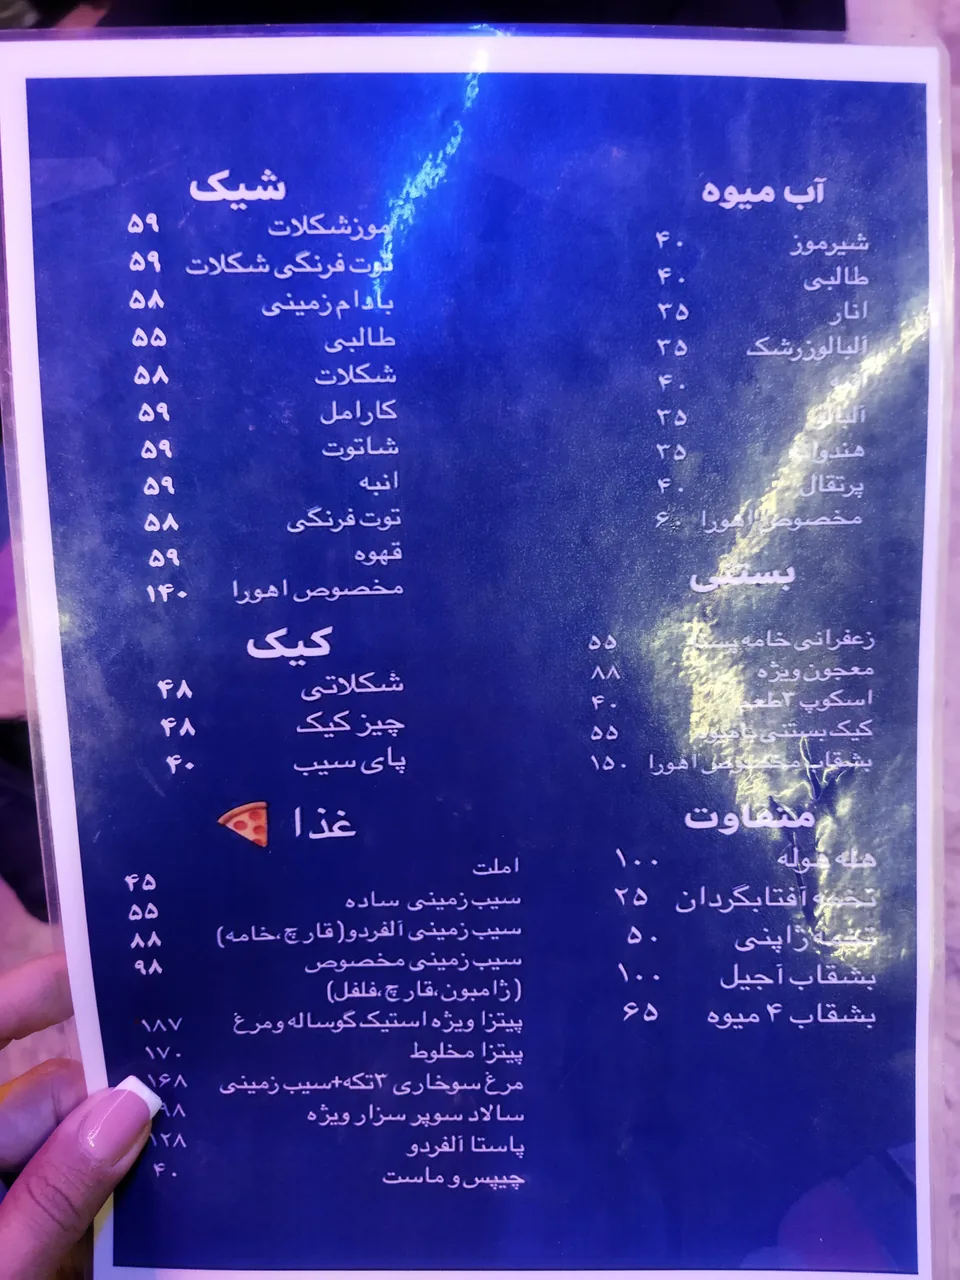 آب میوه
شیرموز ۴۰
طالبی ۴۰
انار ۳۵
آلبالوزرشک ۳۵
۴۰
۳۵
۳۵
پرتقال ۴۰
مخصوص اهورا ۶۰
بستنی
زعفرانی خامه ۵۵
معجون ویژه ۸۸
اسکوپ ۳ ۴۰
کیک بستنی ۵۵
بشقاب مخصوص اهورا ۱۵۰
متفاوت
هله هوله ۱۰۰
تخمه آفتابگردان ۲۵
تخمه ژاپنی ۵۰
بشقاب آجیل ۱۰۰
بشقاب ۴ میوه ۶۵
شیک
موزشکلات ۵۹
توت فرنگی شکلات ۵۹
بادام زمینی ۵۸
طالبی ۵۵
شکلات ۵۸
کارامل ۵۹
شاتوت ۵۹
انبه ۵۹
توت فرنگی ۵۸
قهوه ۵۹
مخصوص اهورا ۱۴۰
کیک
شکلاتی ۴۸
چیز کیک ۴۸
پای سیب ۴۰
غذا
املت ۴۵
سیب زمینی ساده ۵۵
سیب زمینی آلفردو( قارچ،خامه) ۸۸
سیب زمینی مخصوص ۹۸
(ژامبون،قارچ،فلفل)
پیتزا ویژه استیک گوساله و مرغ ۱۸۷
پیتزا مخلوط ۱۷۰
مرغ سوخاری ۳تکه+سیب زمینی ۱۶۸
سالاد سوپر سزار ویژه
پاستا آلفردو ۱۲۸
چیپس و ماست ۴۰